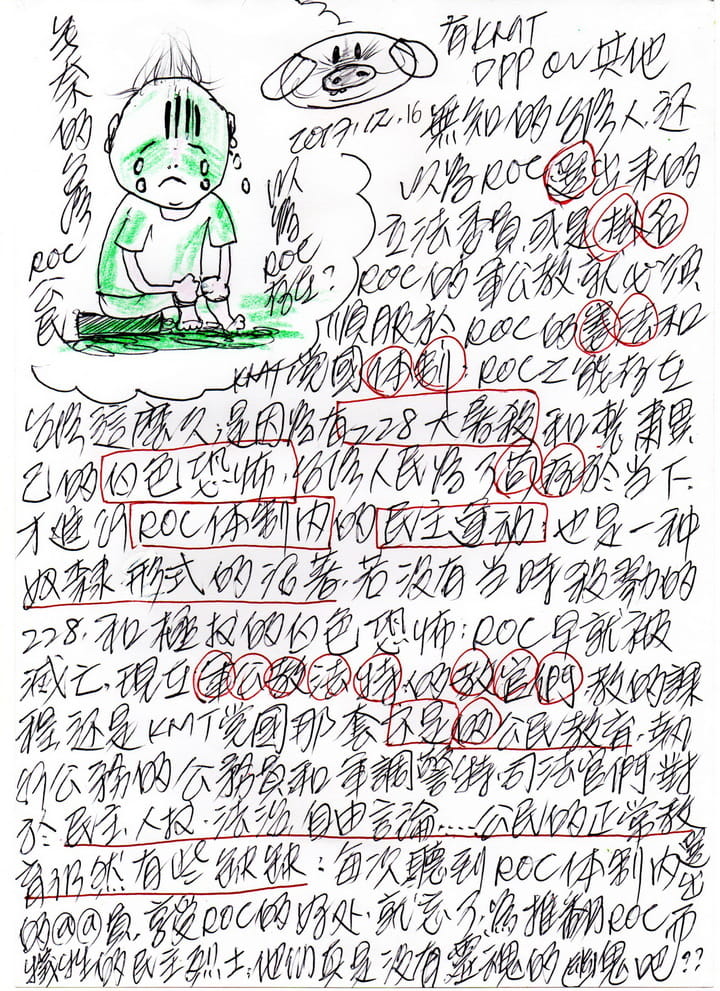 有KMT
DPP or 其他
2017.12.16 無知的台湾人,还
以為ROC選出来的
立法委員,或是掛名
ROC的軍公教就必須
順服於ROC的憲法和
KMT党國体制:ROC之能存在
台湾這麼久,是因為有228大屠殺和整肅異
己的白色恐怖,台湾人民為了苟存於当下,
才進行ROC体制内的民主運动,也是一种
奴隸形式的活著,若没有当時殺戮的
228,和極权的白色恐怖:ROC早就被
滅亡,現在軍公教法特的教官們,教的課
程还是KMT党國那套不是的公民教育,執
行公務的公務員和軍調警特,司法官們,對
於民主.人权.法治.自由言論....公民的正常教
育仍然有些缺缺:每次聽到ROC体制内選出
的@@員,享受ROC的好处,就忘了,為推翻ROC而
犧牲的民主烈士,他们真是没有靈魂的幽鬼吧??
無奈的台湾
ROC公民
以為ROC存在?